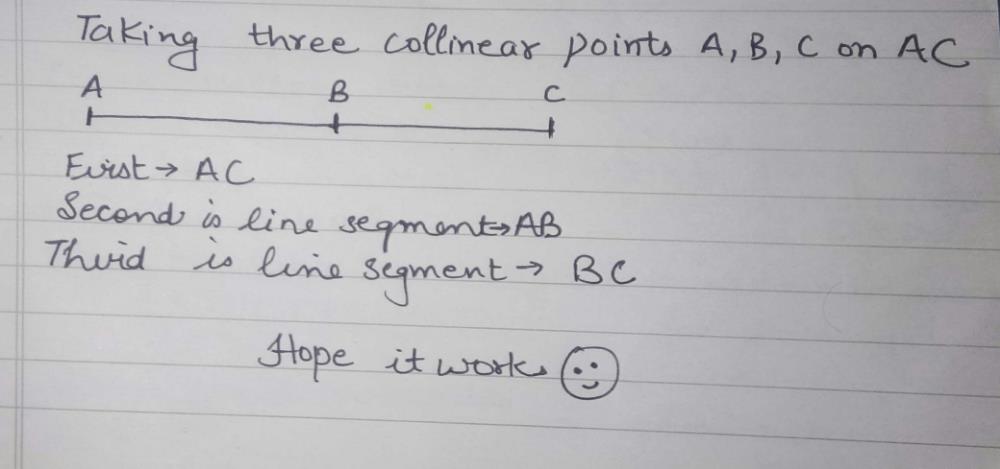 Taking three collinear points A, B, C on AC
A B C
First → AC
Second is line segment → AB
Third is line segment → BC
Hope it works